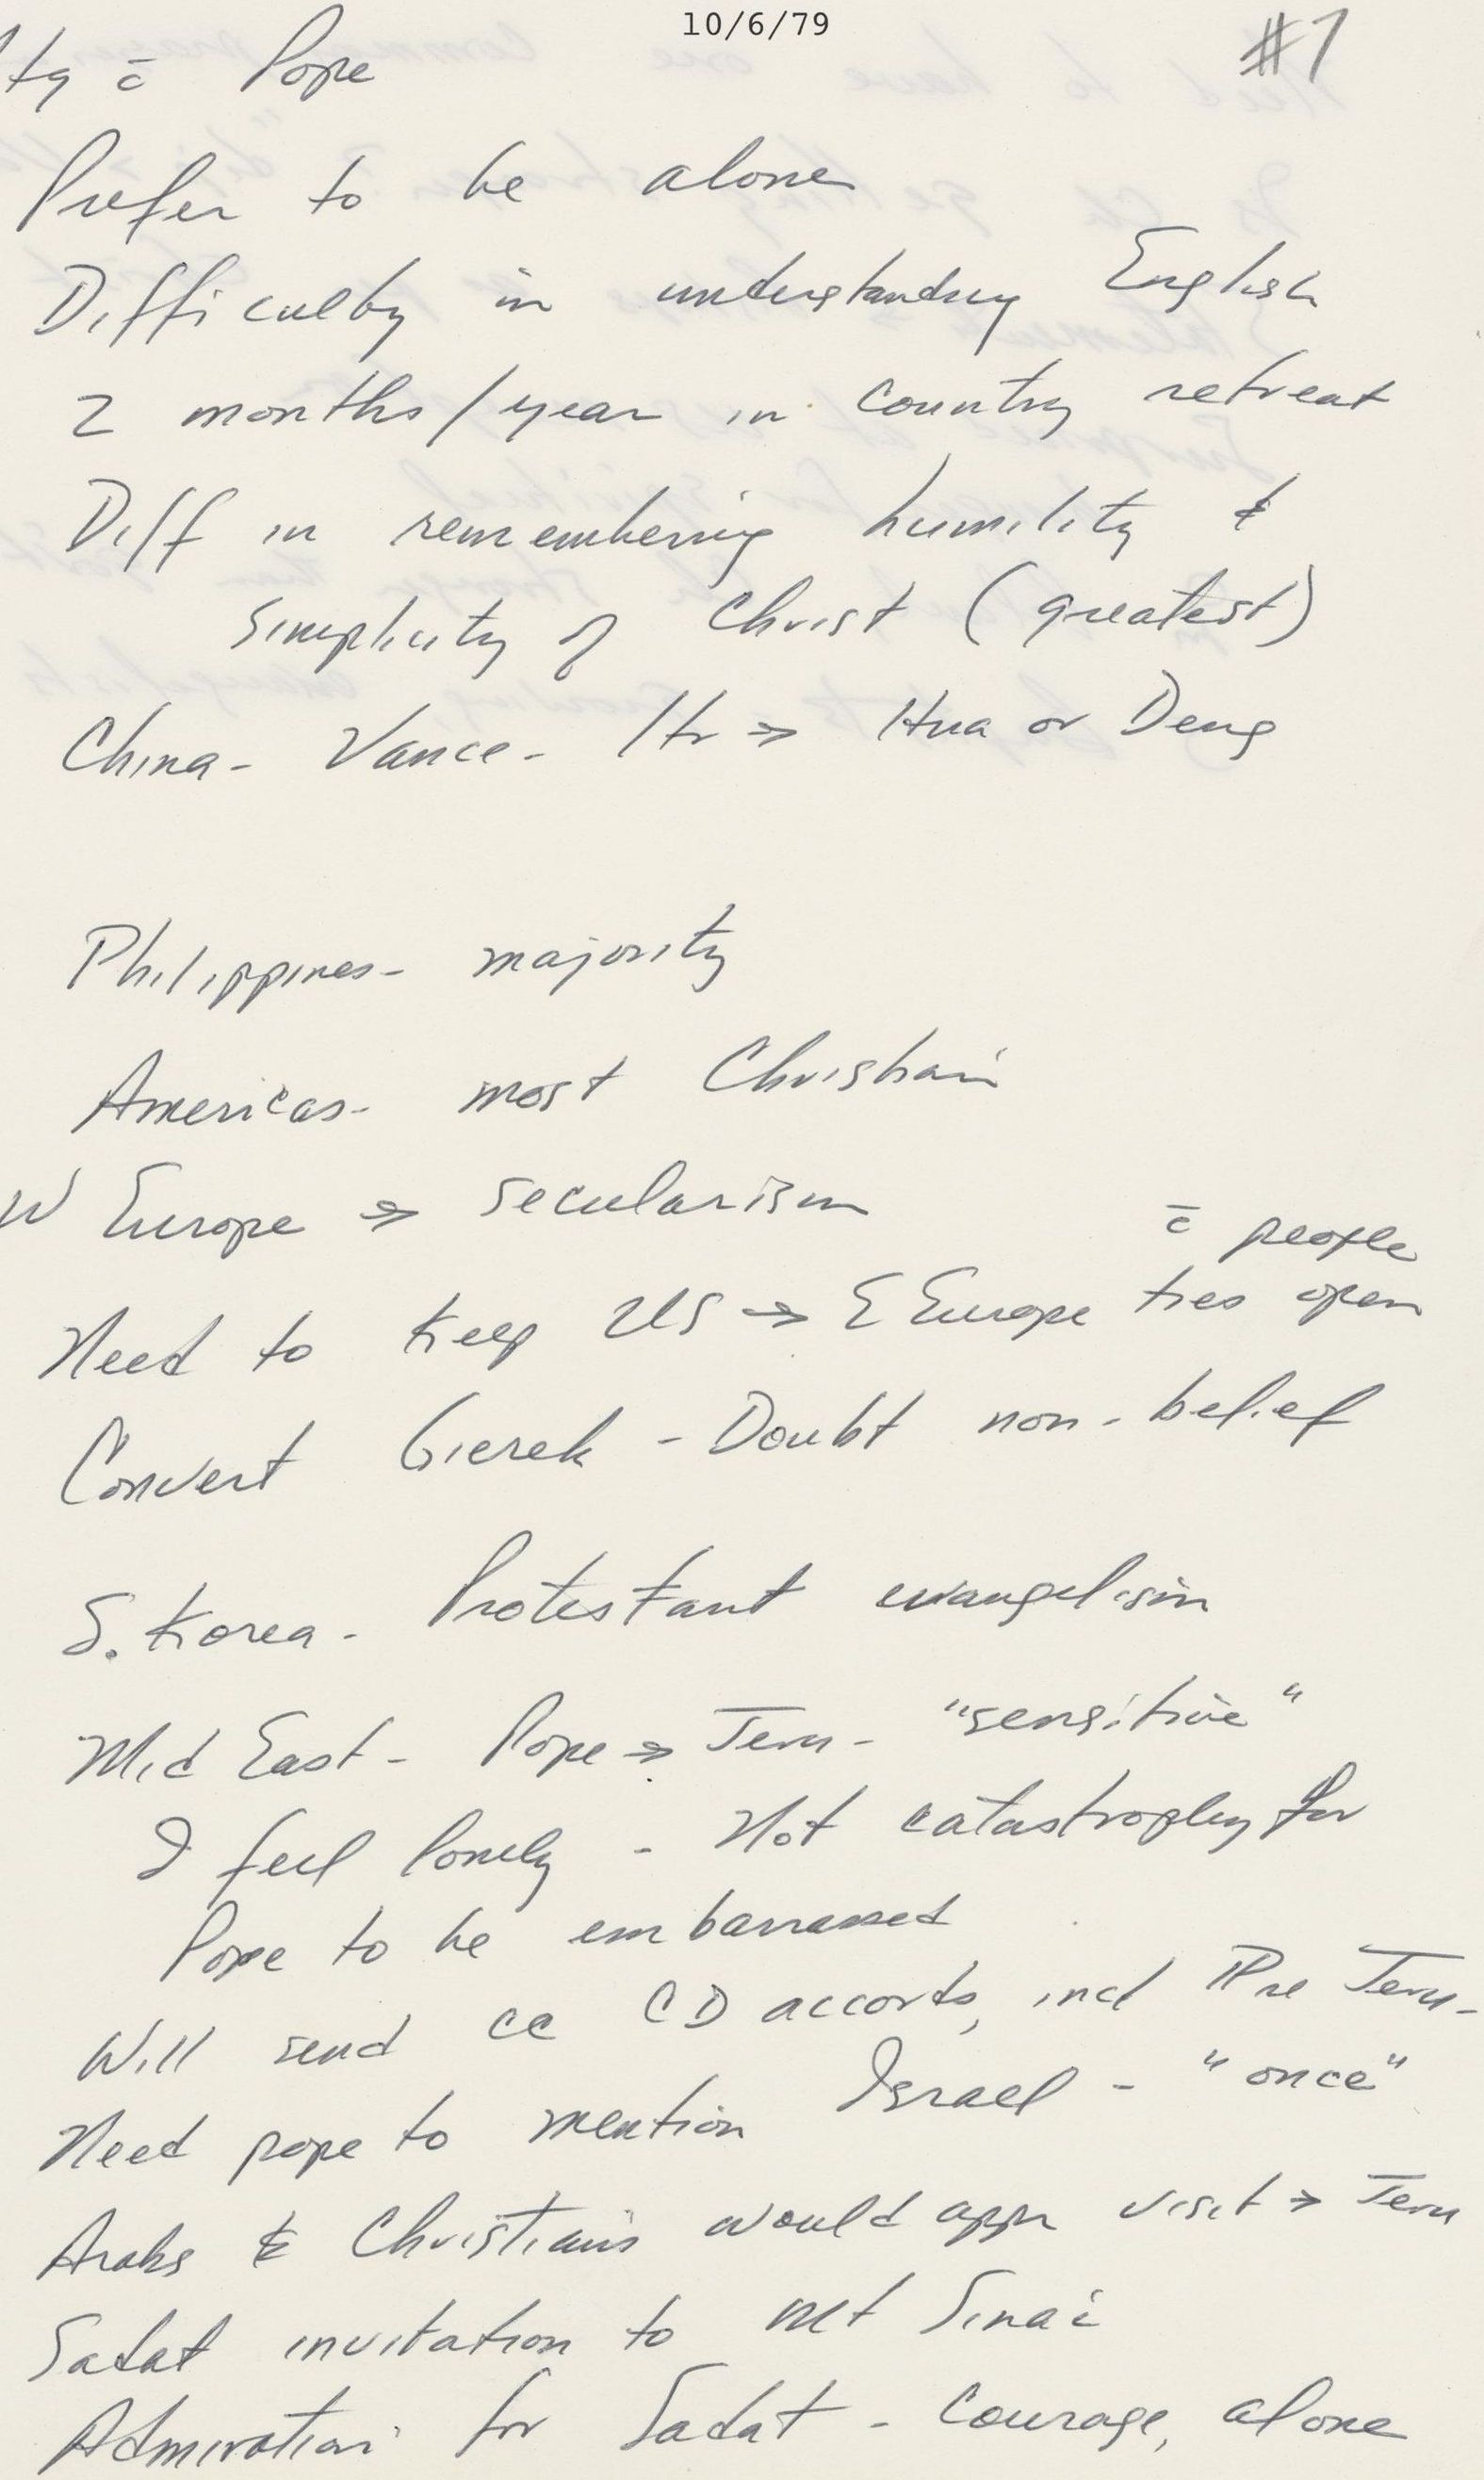 10/6/79
#1
tg c̄ Pope
Prefer to be alone
Difficulty in understanding English
2 months/year in country retreat
Diff in remembering humility &
simplicity of Christ (greatest)
China - Vance - ltr ⇒ Hua or Deng
Philippines - majority
Americas - most Christian
W Europe ⇒ secularism
c̄ people
Need to keep US ⇒ E Europe ties open
Convert Gierek - Doubt non-belief
S. Korea - Protestant evangelism
Mid East - Pope ⇒ Jeru - "sensitive"
I feel lonely - Not catastrophy for
Pope to be embarrassed
Will send cc CD accords, incl ¶ re Jeru -
Need pope to mention Israel - "once"
Arabs & Christians would appr visit → Jeru
Sadat invitation to Mt Sinai
Admiration for Sadat - Courage, alone